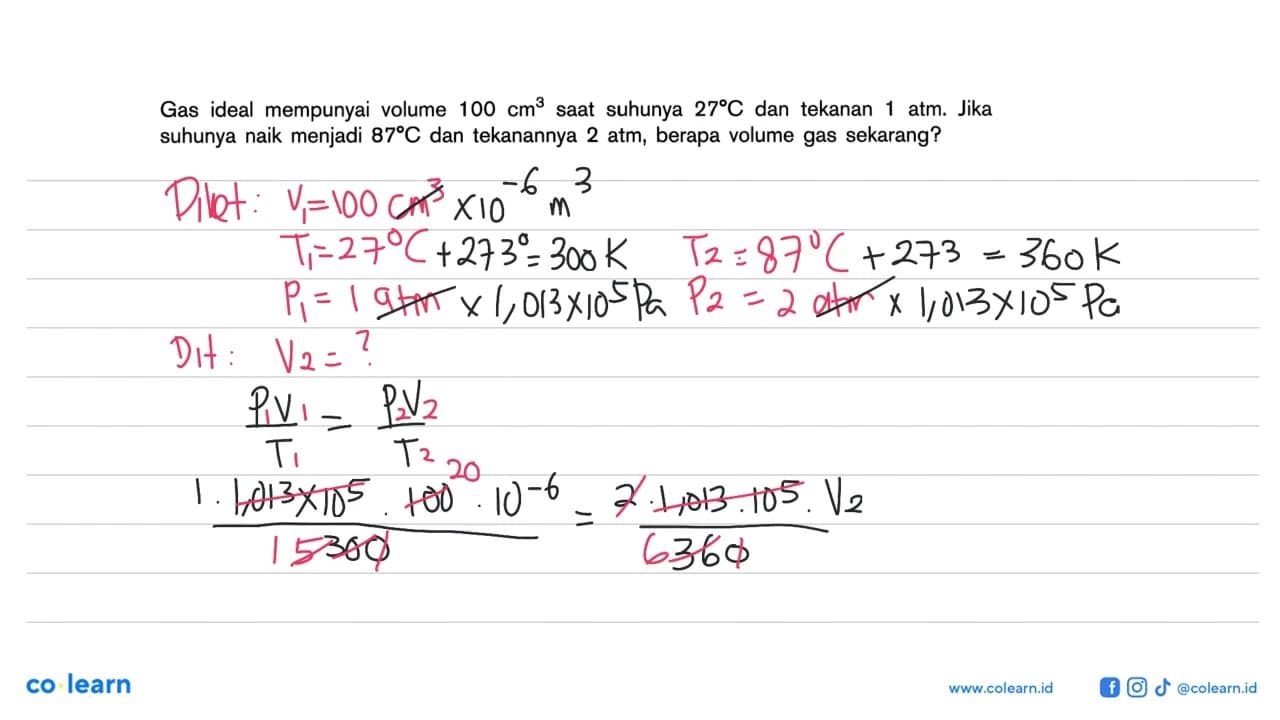 Gas ideal mempunyai volume 100 cm³ saat suhunya 27°C dan tekanan 1 atm. Jika
suhunya naik menjadi 87°C dan tekanannya 2 atm, berapa volume gas sekarang?
Diket: V₁=100 cm³ ×10⁻⁶ m³
T₁=27°C+273°=300K T₂=87°C+273=360K
P₁=1 atm×1,013×10⁵Pa P₂=2 atm×1,013×10⁵Pa
Dit: V₂=?
P₁V₁ = P₂V₂
T₁ T₂
20
1.1,013×10⁵.100.10⁻⁶ = 2.1,013.10⁵.V₂
15300 6360
co learn
www.colearn.id @colearn.id